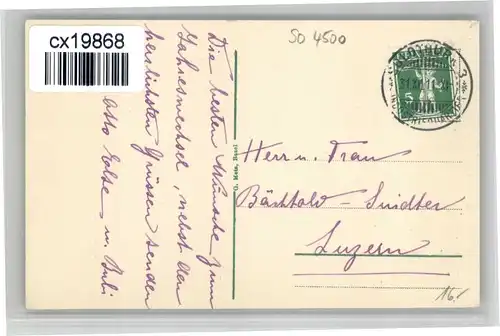 cx19868
SO 4500
Die besten Wünsche zum
Jahreswechsel, nebst den
herzlichsten Grüssen senden
Otto u. Bubi
Basel
5
Herr u. Frau
Bächtold - Suidter
Luzern
16.-